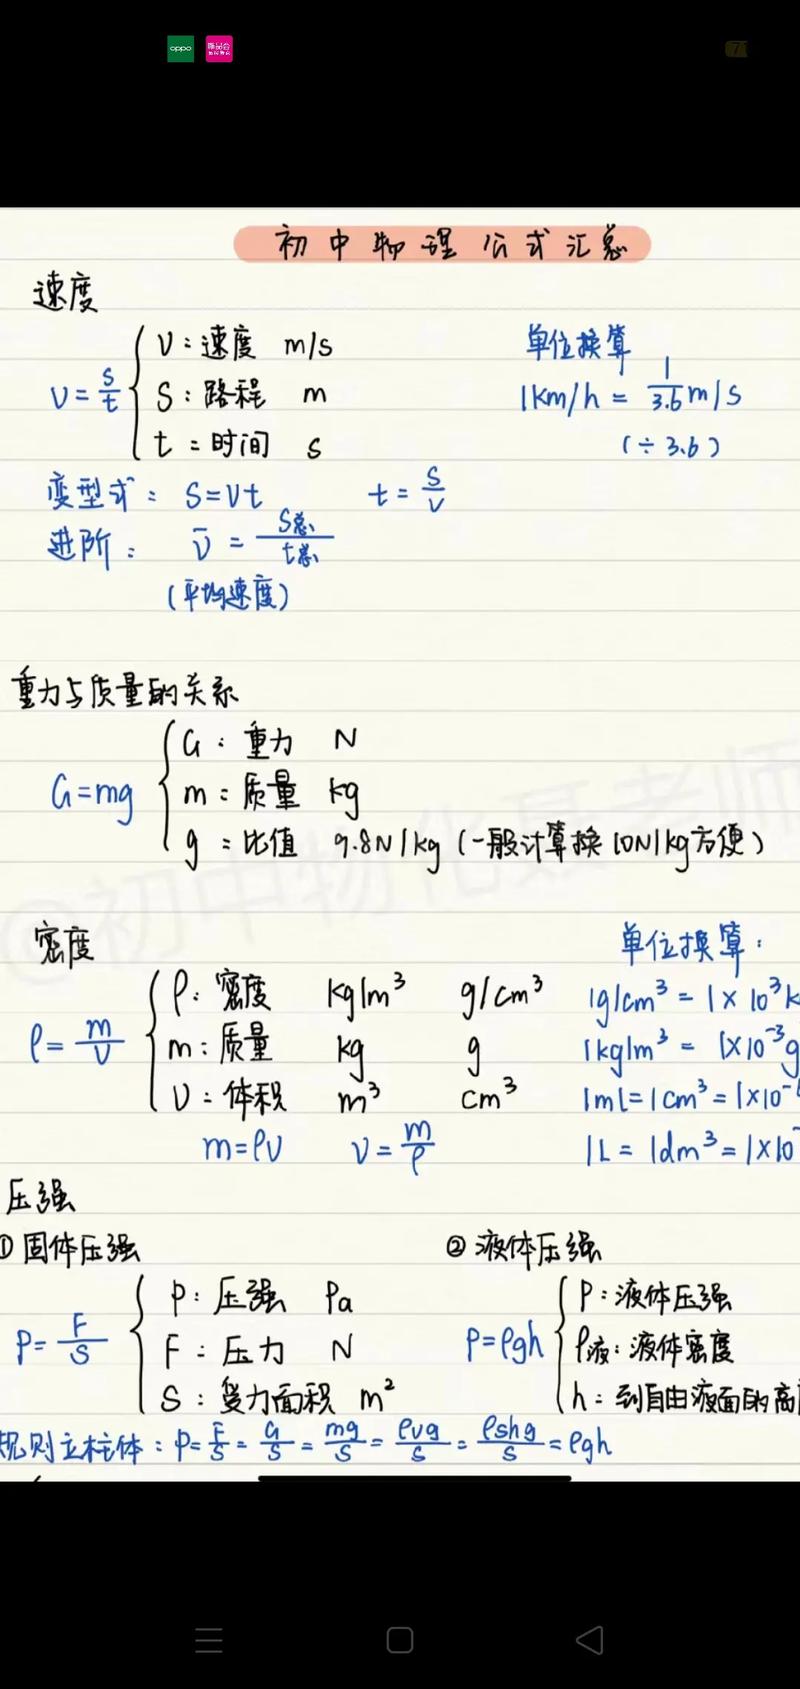 oppo
初中物理公式汇总
速度
v=s/t { v:速度 m/s
S:路程 m
t:时间 s
单位换算
1km/h = 1/3.6 m/s
(÷3.6)
变型式: S=vt t=s/v
进阶: v̄ = S总/t总
(平均速度)
重力与质量的关系
G=mg { G:重力 N
m:质量 kg
g:比值 9.8N/kg (一般计算换10N/kg方便)
密度
ρ=m/V { ρ:密度 kg/m³ g/cm³
m:质量 kg g
V:体积 m³ cm³
m=ρv v=m/ρ
单位换算:
1g/cm³ = 1×10³k
1kg/m³ = 1×10⁻³g
1ml=1cm³=1×10⁻
1L=1dm³=1×10⁻
压强
①固体压强
P=F/S { P:压强 Pa
F:压力 N
S:受力面积 m²
②液体压强
P=ρgh { P:液体压强
ρ液:液体密度
h:到自由液面的高
规则立柱体:P=F/S=G/S=mg/S=ρvg/S=ρshg/S=ρgh
@初中物化聂老师